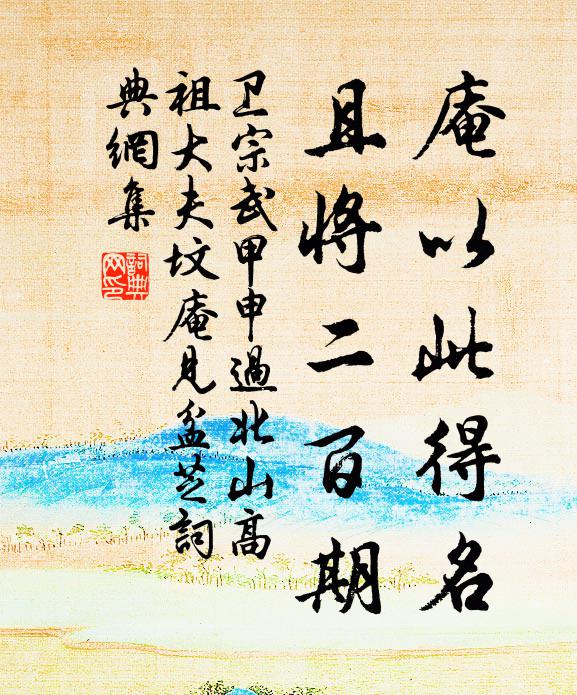 庵以此得名
且将二百期
卫宗武甲申過北山高
祖大夫坟庵見盆芝詞
典網集
詞典网印